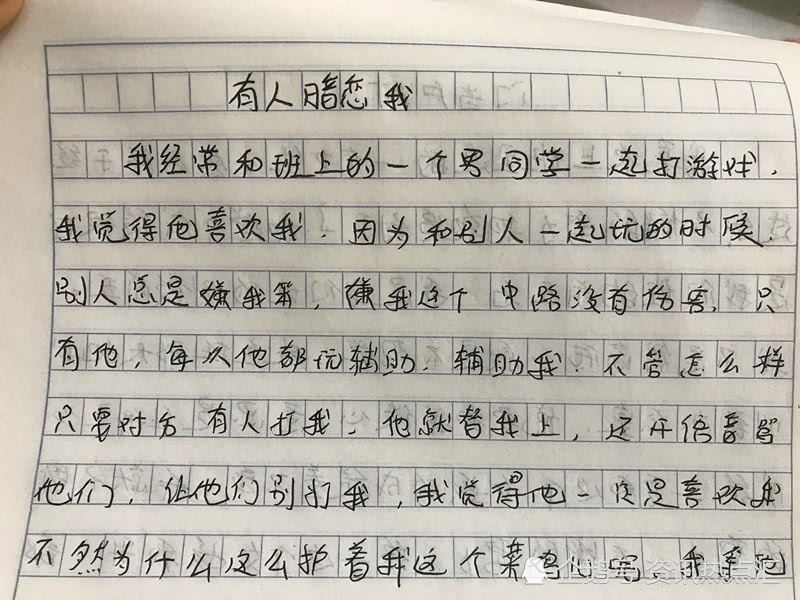 有人暗恋我
我经常和班上的一个男同学一起打游戏,
我觉得他喜欢我.因为和别人一起玩的时候,
别人总是嫌我笨,嫌我这个中路没有伤害,只
有他,每次他都玩辅助,辅助我.不管怎么样
只要对方有人打我,他就替我上,还开语音骂
他们,让他们别打我,我觉得他一定是喜欢我
不然为什么这么护着我这个菜鸟 我
资讯热点汇